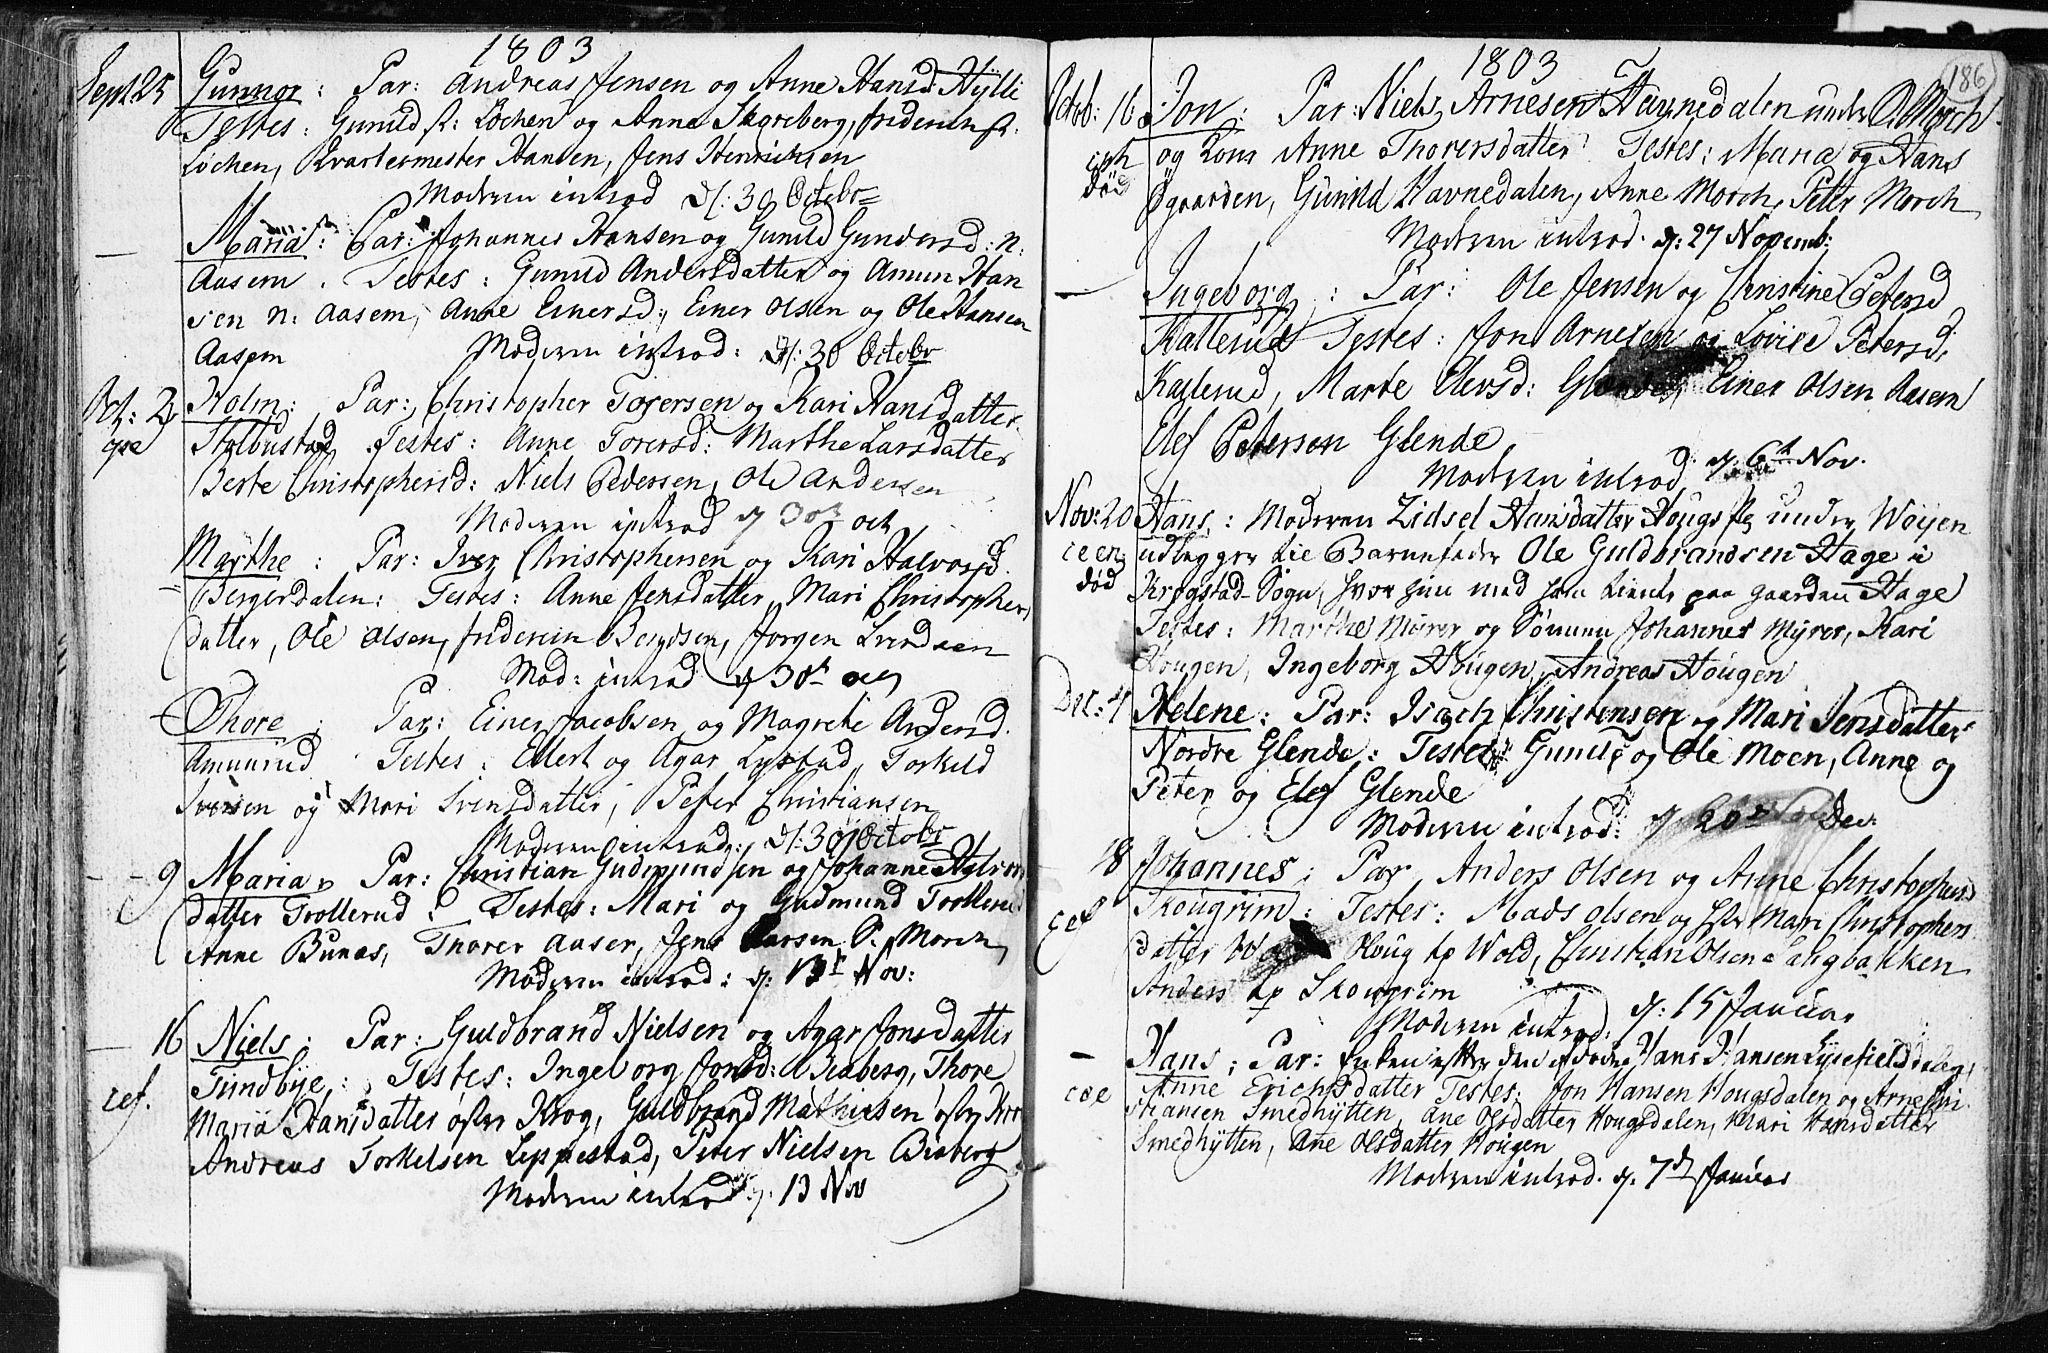 1803
Sept 25 Gunnor: Par: Andreas Jensen og Anne Hansd: Hÿlli
Testes: Gunild Løchen og Anne Skoreberg, friderich
Løchen, Kvartermester Hansen, Jens Henrichsen
Moderen introd d: 30 Octobr
— Maria: Par: Johannes Hansen og Gunild Gundersd: n:
Aasem. Testes: Gunild Andersdatter og Amun Han
sen n: Aasem, Anne Einersd:, Einer Olsen og Ole Hansen
Aasem Moderen introd: d: 30 Octobr
Oct: 2 Holm: Par: Christopher Torersen og Kari Hansdatter
Testes: Anne Torersd: Marthe Larsdatter
Berte Christophersd: Niels Pedersen, Ole Andersen
Moderen introd d 30 oct
Marthe: Par: Iver Christophersen og Kari Halvorsd.
Bergerdalen: Testes: Anne Jensdatter, Mari Christophers
datter, Ole Olsen, friderich Jørgen
Mod: introd d 30 oct
Thore: Par: Einer Jacobsen og Magrete Andersd.
Amunrud Testes: Edert og Agar Lystad, Torkild
Iversen og Mari Svensdatter, Peter Christiansen
Moderen introd: d: 30 Octobr
— 9 Maria, Par: Christian Gudmundsen og Johanne Halvors
datter Trollerud: Testes: Mari og Gudmund Trollerud
Anne Bunæs, Thorer Aaser, Jens Larsen S. Morch
Moderen introd: d: 13 Nov:
— 16 Niels: Par: Guldbrand Nielsen og Agar Jonsdatter
Tundbÿe: Testes: Ingeborg Jonsd: Biaberg, Thore
Maria Hansdatter øster Krog, Guldbrand Mathiesen øster Kro
Andreas Torkelsen Leppestad, Peter Nielsen Biaberg
Moderen introd d. 13 Nov
1803
186
Octob: 16 Jon: Par: Niels Arnesen Havnedalen under Ø. Morch
og Kone Anne Thorersdatter Testes: Maria og Hans
død Øgaarden, Gunild Havnedalen, Anne Morch, Peter Morch
Moderen introd. d: 27 Novemb:
— Ingeborg: Par: Ole Jensen og Christine Petersd
Kallerud Testes: Jon Arnesen og Lovise Petersd:
Kallerud, Marte Elevsd: Glende, Einer Olsen Aasem
Elef Petersen Glende
Moderen introd d: 6 Nov.
Nov: 20 Hans: Moderen Zidsel Hansdatter Hougs under Woyen
udlegger til Barnefader Ole Guldbrandsen Hage i
død Krogstad Sogn, hvor hun med ham tiente paa gaarden Hage
Testes: Marthe Mÿrer og Johannes Mÿrer, Kari
Hougen, Ingeborg Hougen, Andreas Hougen
Dec: 4 Helene: Par: Isach Christensen og Mari Jensdatter
Nordre Glende: Testes: Gunild og Ole Moen, Anne og
Peter og Elef Glende
Moderen introd: d 26 Dec:
18 Johannes: Par Anders Olsen og Anne Christophersd
Skougrim: Testes: Mads Olsen og Mari Christophers
datter Houg Wold, Christian Olsen Langbakken
Anders Skougrim
Moderen introd: d: 15 Januar
— Hans: Par: Enken efter den afdøde Hans Hansen
Anne Erichsdatter Testes: Jon Hansen Hougsdalen og Arne
Smedhÿtten, Ane Olsdatter Hougsdalen, Mari Hansdatter
Smedhÿtten, Ane Olsdatter Hougen
Moderen introd. d. 7 Januar